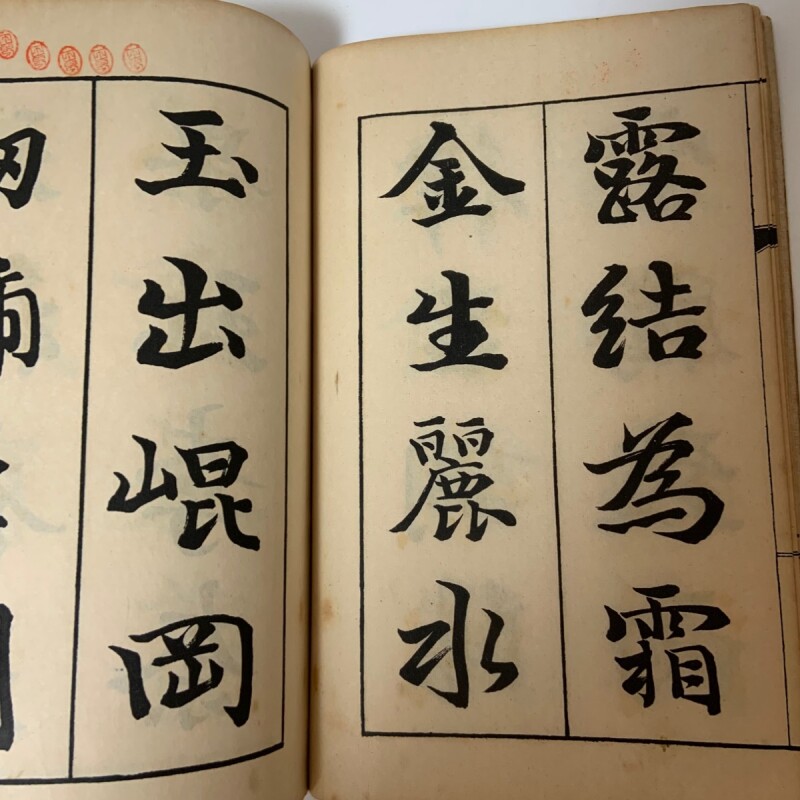 露結為霜
金生麗水
玉出崐岡